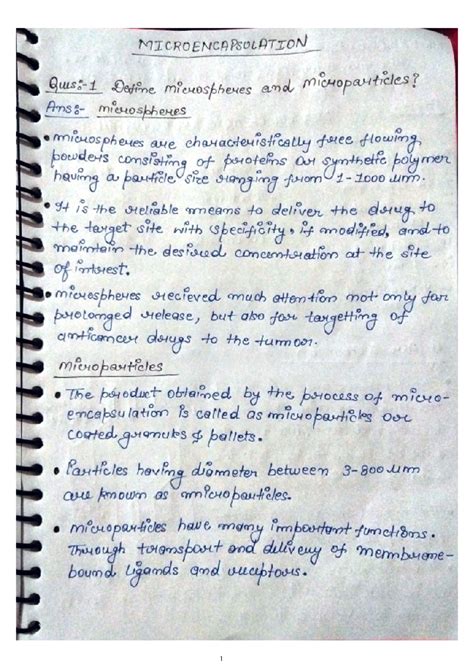 MICROENCAPSULATION
Ques:-1 Define microspheres and microparticles?
Ans:- microspheres
• microspheres are characteristically free flowing
powders consisting of proteins or synthetic polymer
having a particle size ranging from 1-1000 um.
• It is the reliable means to deliver the drug to
the target site with specificity, if modified, and to
maintain the desired concentration at the site
of intrest.
• microspheres recieved much attention not only for
prolonged release, but also for targetting of
anticancer drugs to the tumor.
microparticles
• The product obtained by the process of micro-
encapsulation is called as microparticles or
coated granules & pallets.
• Particles having diameter between 3-800 um
are known as microparticles.
• microparticles have many important functions.
Through transport and delivery of membrane-
bound ligands and receptors.
1